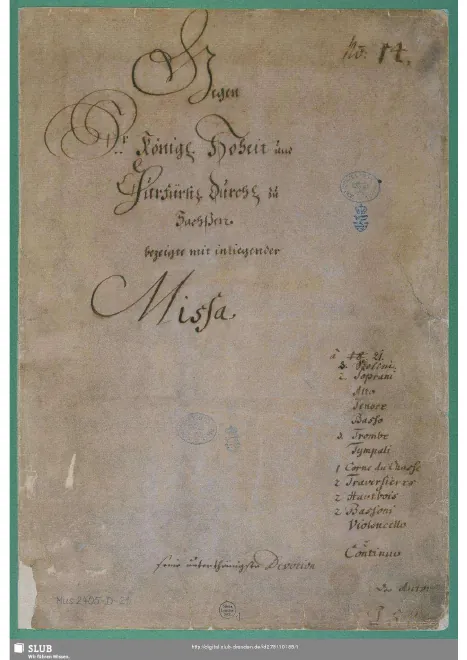 Gegen
Sr. Königl. Hoheit und
Churfürstl. Durchl. zu
Sachßen
bezeigte mit inliegender
Missa
No: 14.
2 Soprani
Alto
Tenore
Basso
3 Trombe
Tympali
1 Corne du Chasse
2 Traversieres
2 Hautbois
2 Bassoni
Violoncello
e
Continuo
seine unterthänigste Devotion
Der Autor
Mus 2405-D-21
SLUB
Wir führen Wissen.